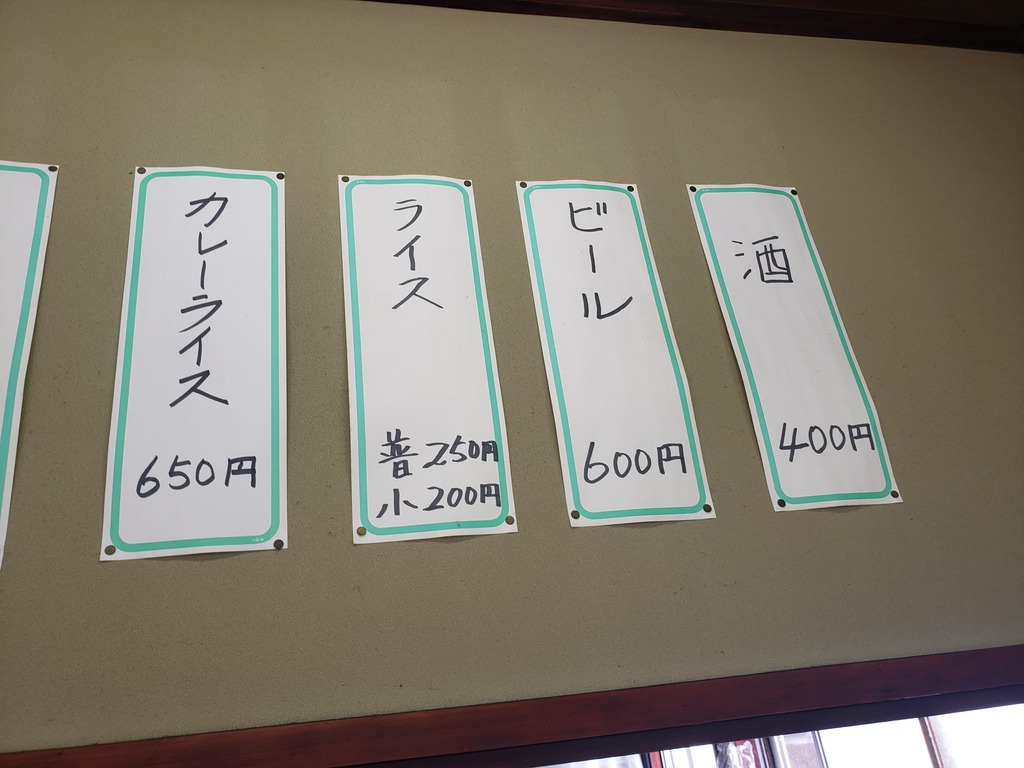 酒
400円
ビール
600円
ライス
普250円
小200円
カレーライス
650円